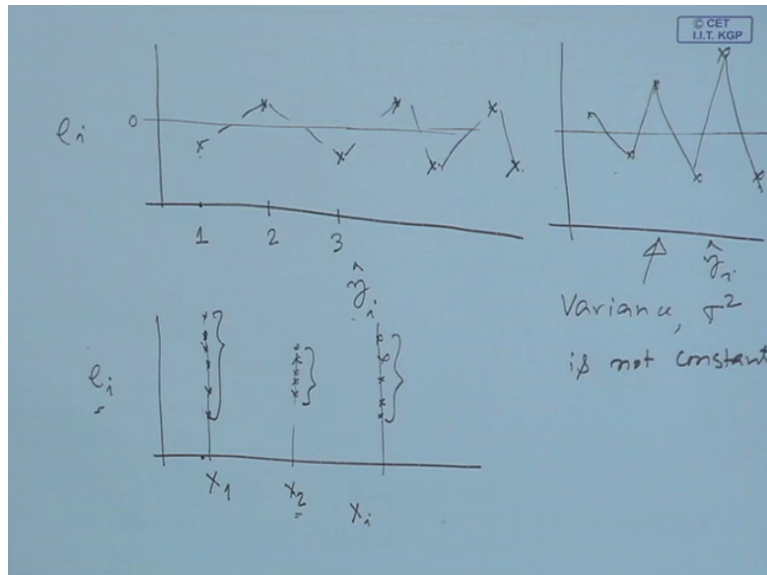 © CET
I.I.T. KGP
e_i
0
1 2 3
ŷ_i
ŷ_i
Variance, σ²
is not constant
e_i
X_1 X_2 X_i